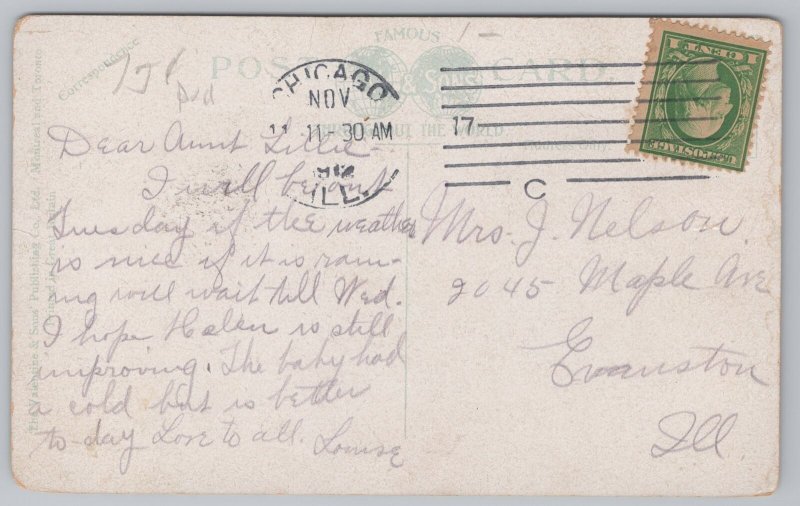 Correspondence
FAMOUS
POST CARD.
& Sons
THROUGHOUT THE WORLD.
The Valentine & Sons' Publishing Co., Ltd., Montreal and Toronto
Printed in Great Britain
CHICAGO
NOV
11 11-30 AM
ILL.
17-
C
1 CENT 1
U.S. POSTAGE
Dear Aunt Lillie-
I will be out
Tuesday if the weather
is nice if it is rain-
ing will wait till Wed.
I hope Helen is still
improving. The baby had
a cold but is better
to-day Love to all. Louise
Mrs. J. Nelson.
2045 Maple Ave
Evanston
Ill